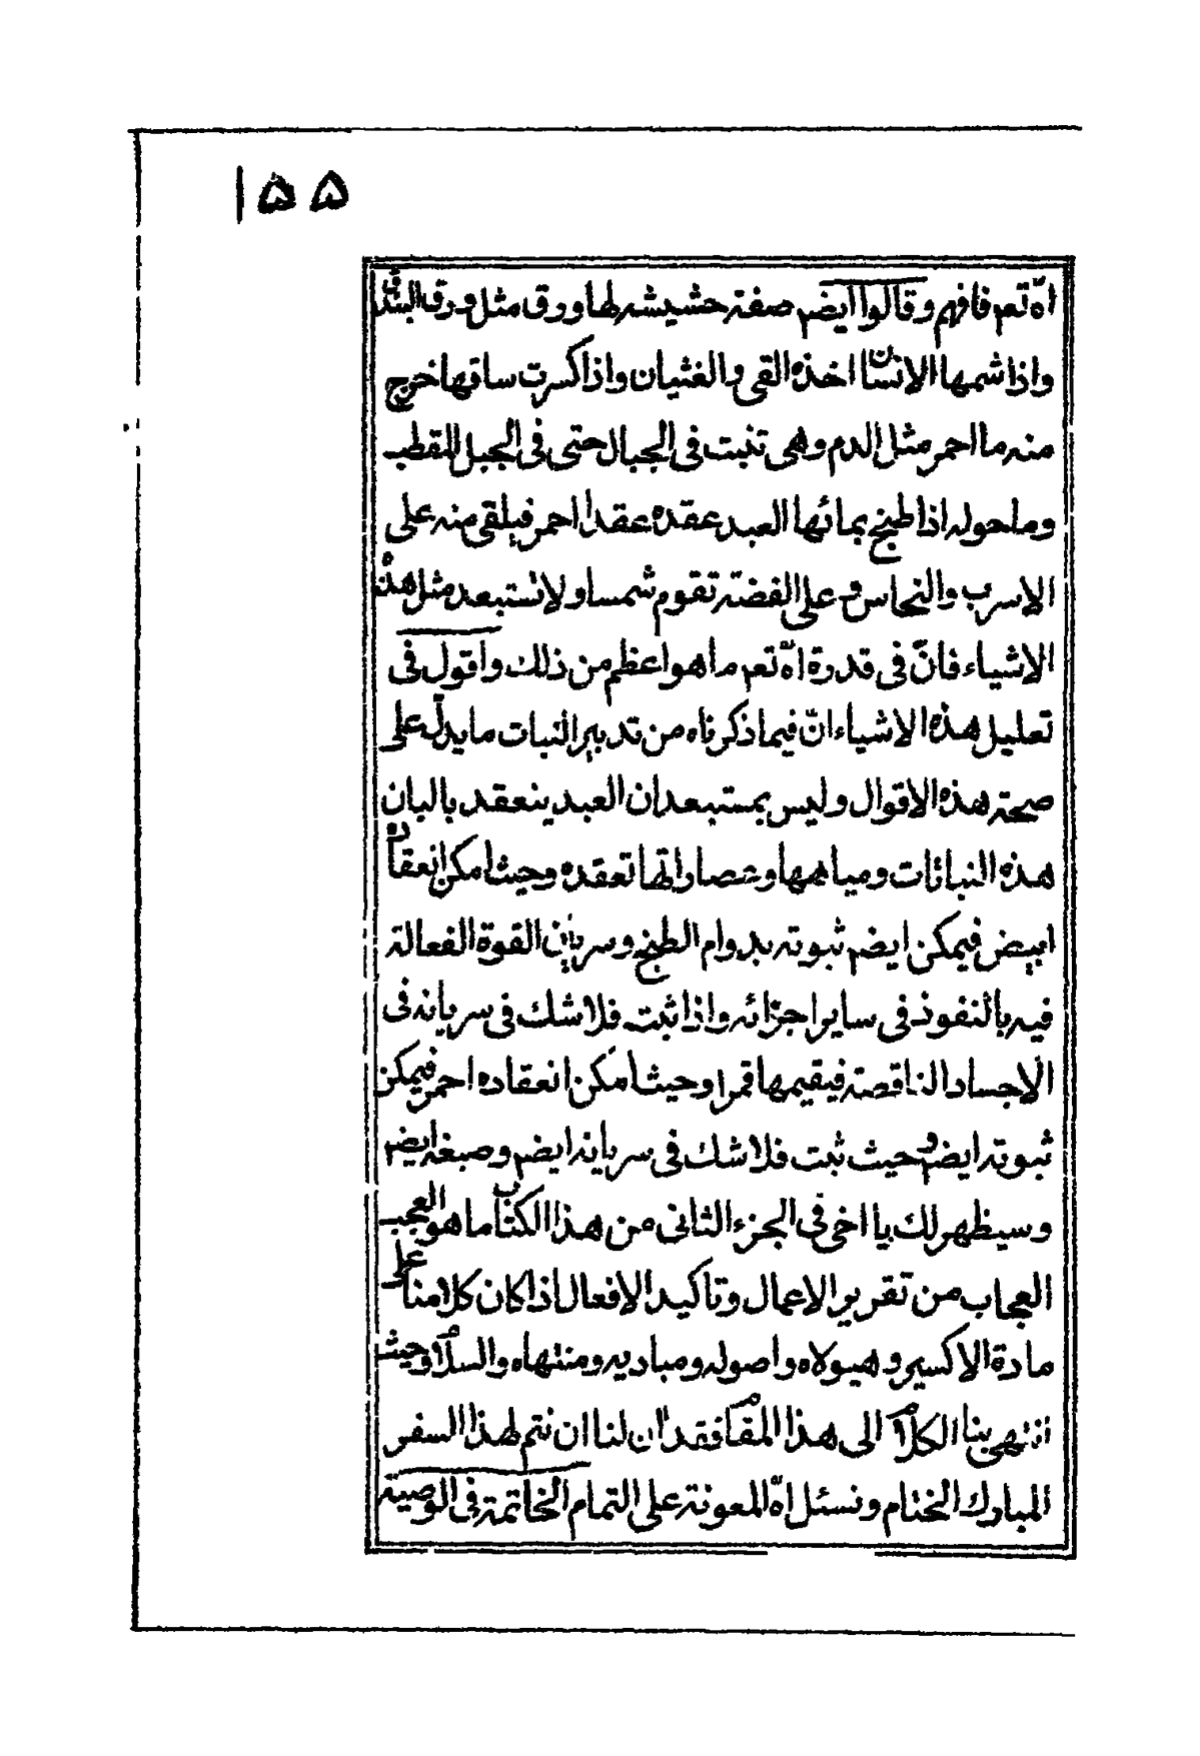 ۱۵۵
اللّه تعم فافهم وقالوا ايضم صفة حشيشه لها ورق مثل ورق البندق
واذا شمها الانسان اخذه القى والغثيان واذا كسرت ساقها خرج
منه ما احمر مثل الدم وهى تنبت فى الجبال حتى فى الجبل المقطب
وما حوله اذا طبخ بمائها العبد عقده عقدا احمر فيلقى منه على
الاسرب والنحاس وعلى الفضة تقوم شمسا ولا تستبعد مثل هذه
الاشياء فانّ فى قدرة اللّه تعم ما هو اعظم من ذلك واقول فى
تعليل هذه الاشياء انّ فيما ذكرناه من تدبير النبات ما يدلّ على
صحة هذه الاقوال وليس بمستبعد ان العبد ينعقد بالبان
هذه النباتات ومياهها وعصاراتها تعقده وحيث امكن انعقاده
ابيض فيمكن ايضم ثبوته بدوام الطبخ وسريان القوة الفعالة
فيه بالنفوذ فى ساير اجزائه واذا ثبت فلا شك فى سريانه فى
الاجساد الناقصة فيقيمها قمرا وحيث امكن انعقاده احمر فيمكن
ثبوته ايضم وحيث ثبت فلا شك فى سريانه ايضم وصبغه ايضم
وسيظهر لك يا اخى فى الجزء الثانى من هذا الكتاب ما هو العجب
العجاب من تقرير الاعمال وتاكيد الافعال اذا كان كلامنا على
مادة الاكسير وهيولاه واصوله ومباديه ومنتهاه والسلام وحيث
انتهى بنا الكلام الى هذا المقام فقد ان لنا ان نتم لهذا السفر
المبارك الختام ونسئل اللّه المعونة على التمام الخاتمة فى الوصية